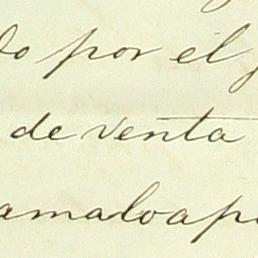 do por el
de venta
amaloapa